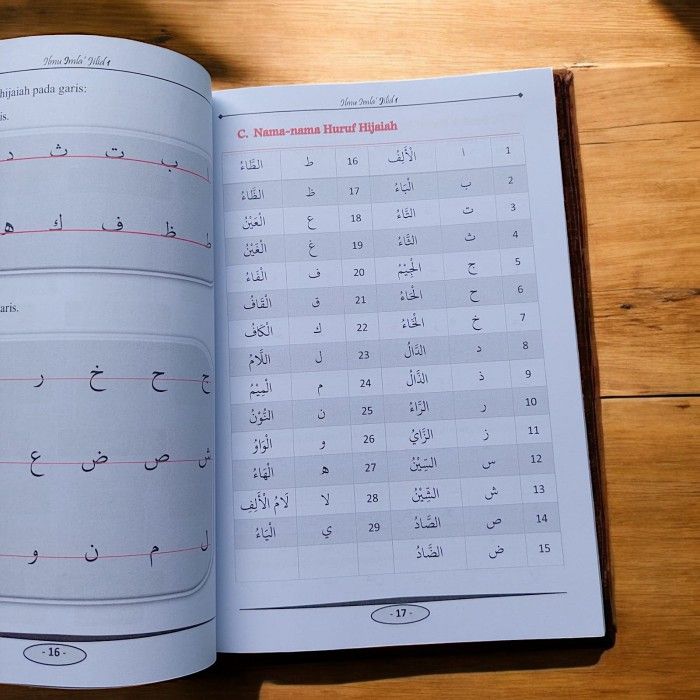 Ilmu Imla' Jilid 1
hijaiah pada garis:
is.
ا ب ت ث
ط ظ ف ك ه
aris.
ج ح خ ر
ش ص ض ع
ل م ن و
- 16 -
Ilmu Imla' Jilid 1
C. Nama-nama Huruf Hijaiah
1 ا الْأَلِفُ 16 ط الطَّاءُ
2 ب الْبَاءُ 17 ظ الظَّاءُ
3 ت التَّاءُ 18 ع الْعَيْنُ
4 ث الثَّاءُ 19 غ الْغَيْنُ
5 ج الْجِيْمُ 20 ف الْفَاءُ
6 ح الْحَاءُ 21 ق الْقَافُ
7 خ الْخَاءُ 22 ك الْكَافُ
8 د الدَّالُ 23 ل اللَّامُ
9 ذ الذَّالُ 24 م الْمِيْمُ
10 ر الرَّاءُ 25 ن النُّوْنُ
11 ز الزَّايُ 26 و الْوَاوُ
12 س السِّيْنُ 27 ه الْهَاءُ
13 ش الشِّيْنُ 28 لا لَامُ الْأَلِفِ
14 ص الصَّادُ 29 ي الْيَاءُ
15 ض الضَّادُ
- 17 -